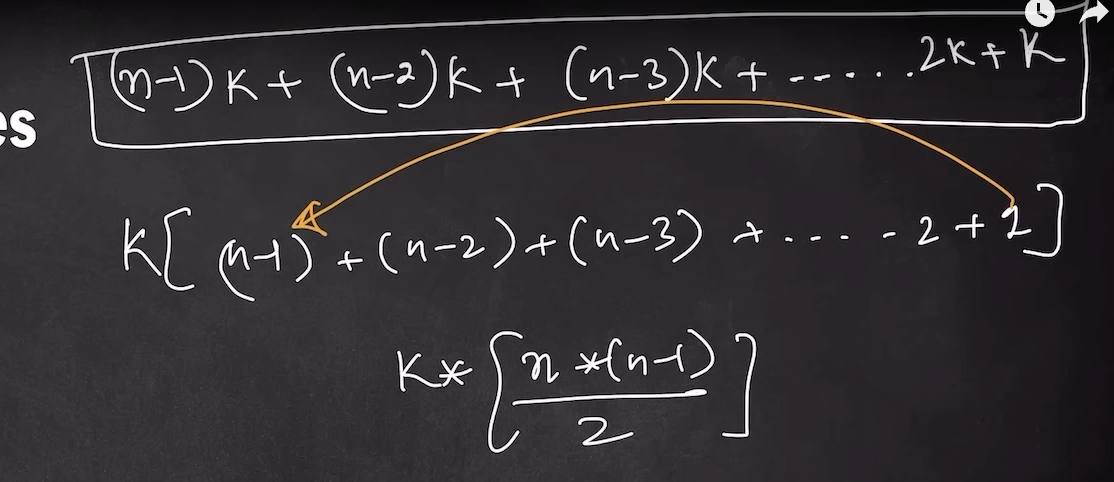 (n-1)K + (n-2)K + (n-3)K + ------.2K + K
es
K[(n-1) + (n-2) + (n-3) + ---- 2 + 1]
K*[n*(n-1)/2]